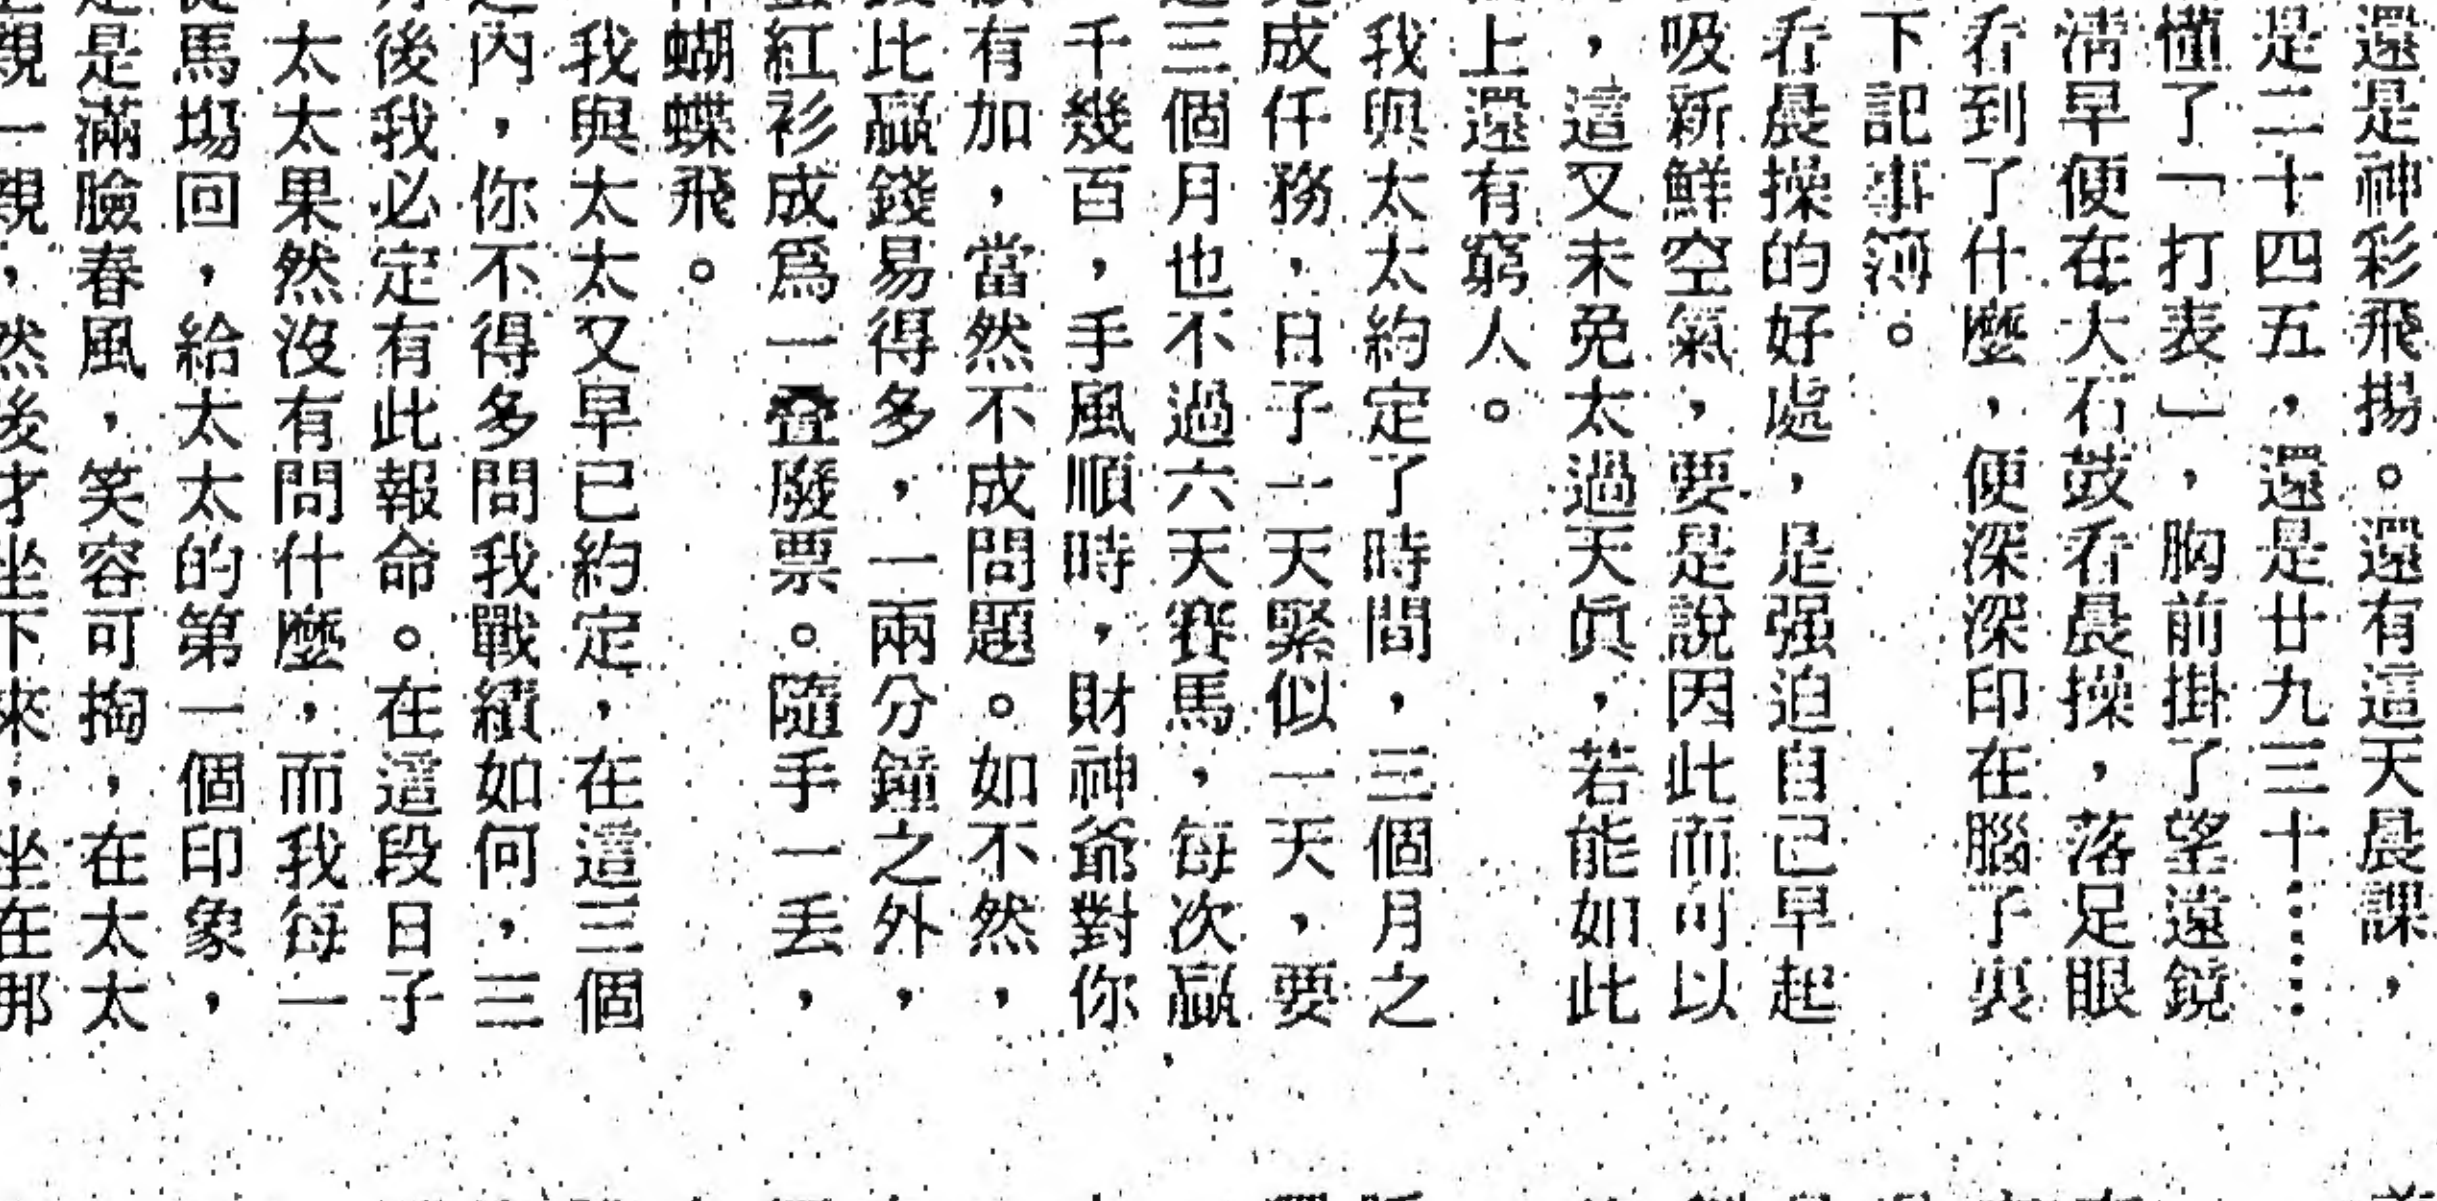 還是神彩飛揚。還有這天晨課，
是二十四五，還是廿九三十……
懂了「打表」，胸前掛了望遠鏡
淸早便在大石鼓看晨操，落足眼
看到了什麼，便深深印在腦子裏
下記事簿。
看晨操的好處，是强迫自己早起
吸新鮮空氣，要是說因此而可以
，這又未免太過天眞，若能如此
上還有窮人。
我與太太約定了時間，三個月之
成仟務，日子一天緊似一天，要
三個月也不過六天賽馬，每次贏
千幾百，手風順時，財神爺對你
有加，當然不成問題。如不然，
比贏錢易得多，一兩分鐘之外，
紅衫成爲一叠廢票。隨手一丢，
蝴蝶飛。
我與太太又早已約定，在這三個
內，你不得多問我戰績如何，三
後我必定有此報命。在這段日子
太太果然沒有問什麼，而我每一
馬塲回，給太太的第一個印象，
是滿臉春風，笑容可掬，在太太
親一親，然後才坐下來，坐在那